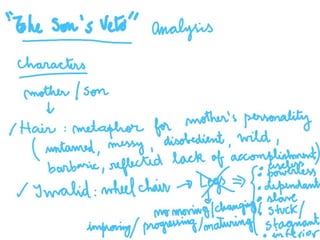 "The Son's Veto" Analysis
Characters
mother / son
↓
✓ Hair : metaphor for mother's personality
( untamed, messy, disobedient, wild,
barbaric, reflected lack of accomplishment)
✓ Invalid : wheel chair → Legs ⇒
• useless
• powerless
• dependent
• slave
• stuck /
stagnant
• inferior
no moving / changing /
improving / progressing / maturing